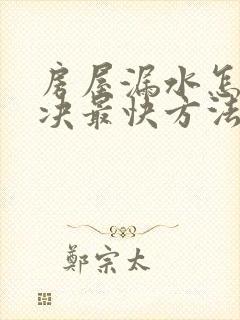 房屋漏水怎
决最快方法
鄭宗太